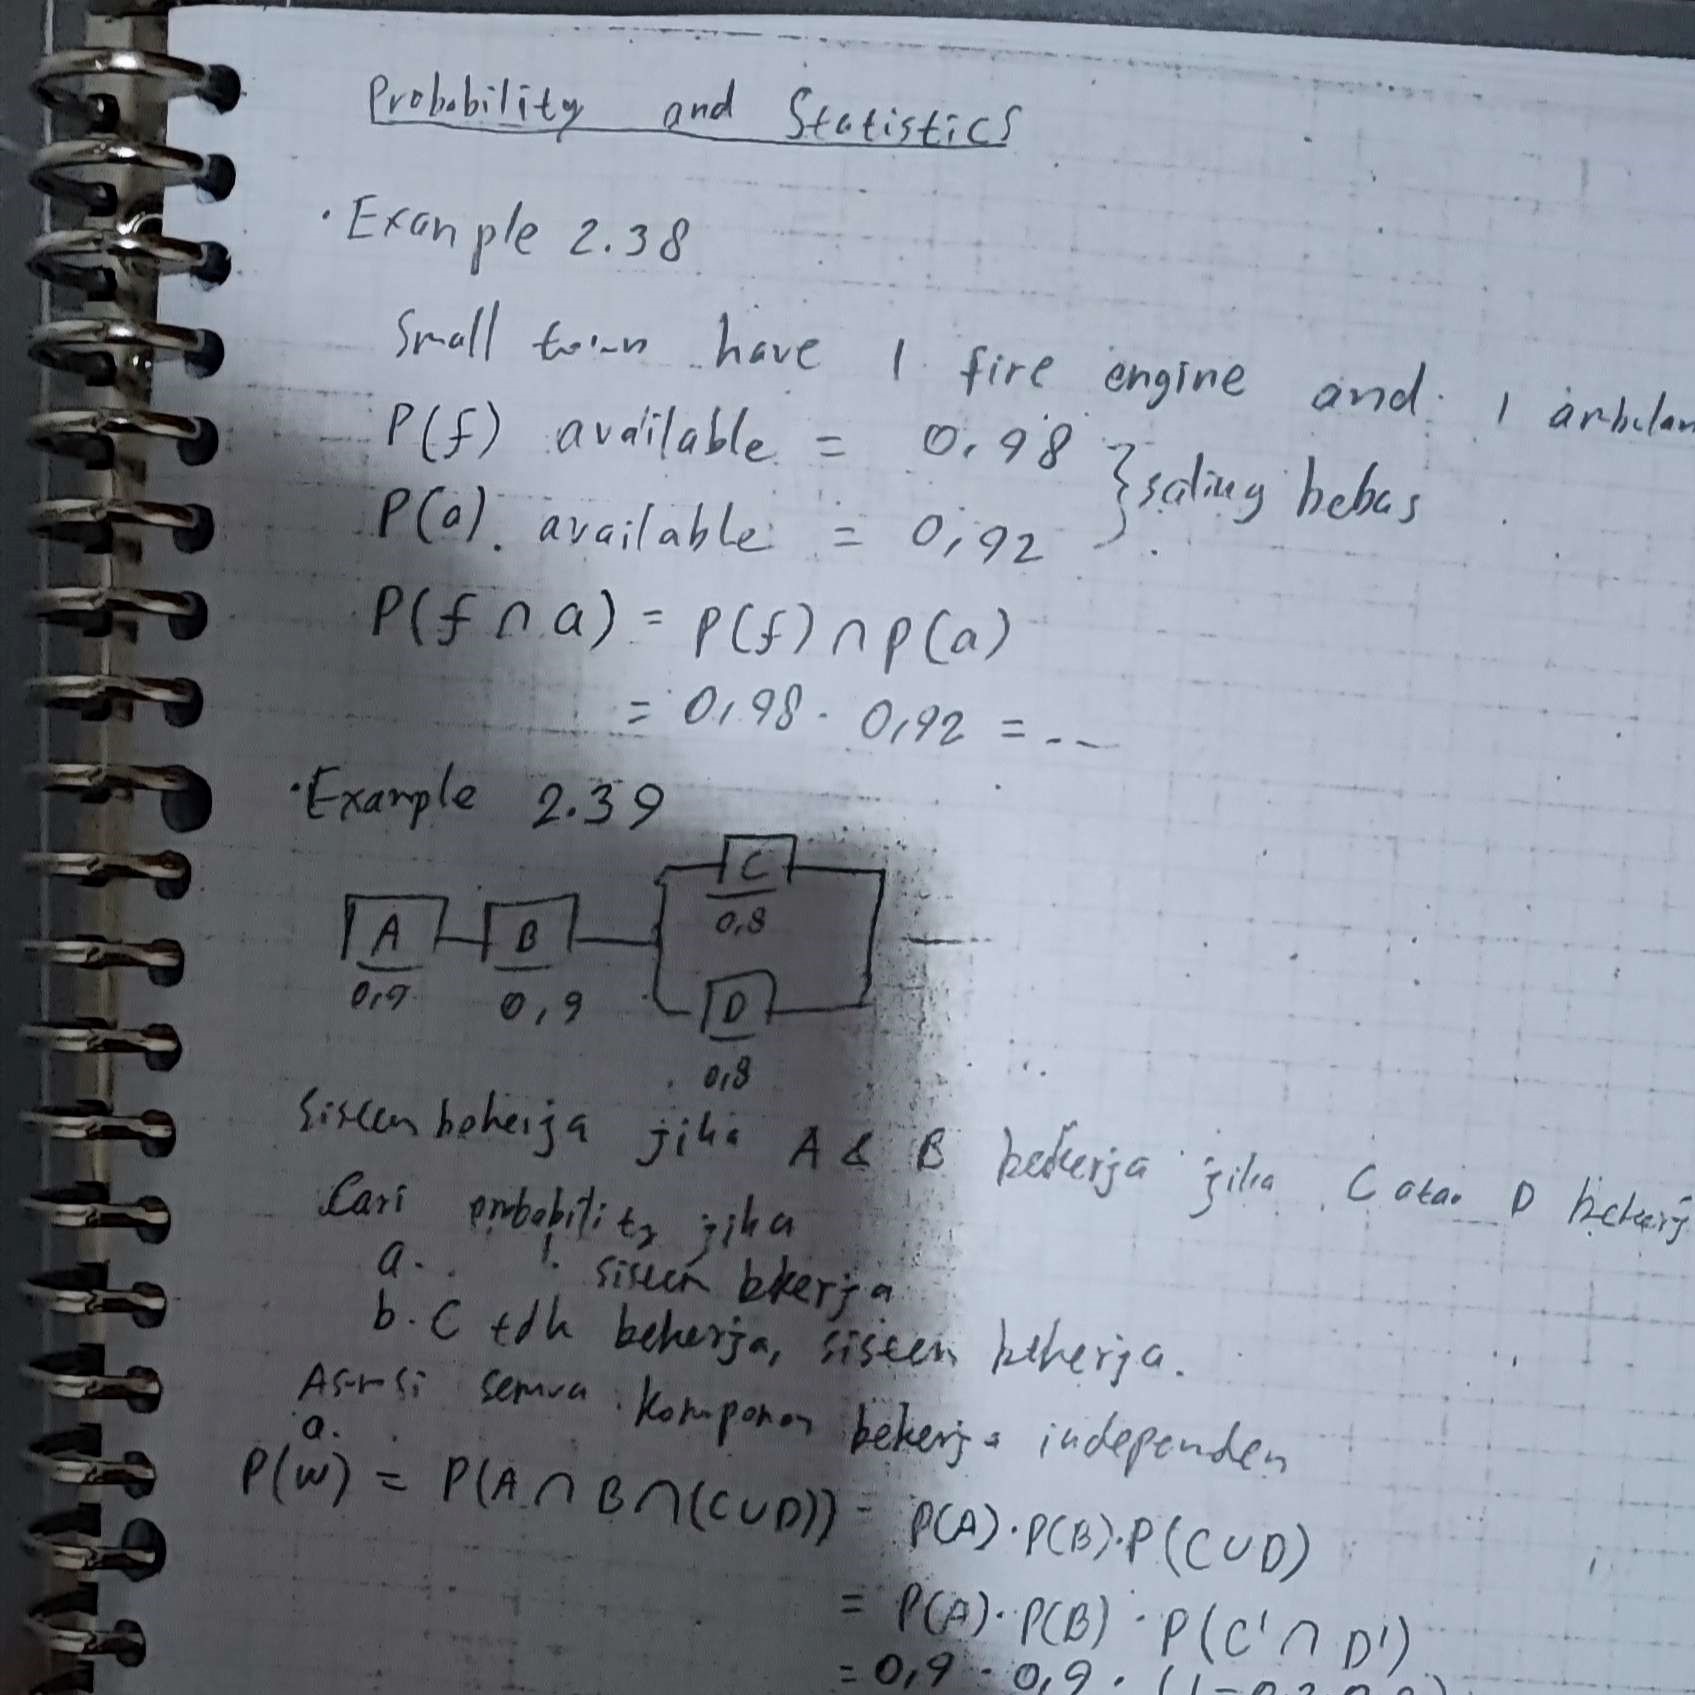 Probability and Statistics
• Example 2.38
Small town have 1 fire engine and 1 ambulan
P(f) available = 0,98
} saling bebas
P(a). available = 0,92
P(f ∩ a) = P(f) ∩ P(a)
= 0,98 · 0,92 = ---
• Example 2.39
C
0,8
A
B
0,9
0,9
D
0,8
Sistem bekerja jika A & B bekerja jika C atau D bekerj
Cari probability jika
a. sistem bkerja
b. C tdk bekerja, sistem bekerja.
Asumsi semua komponen bekerja independen
a.
P(W) = P(A ∩ B ∩ (C ∪ D)) = P(A) · P(B) · P(C ∪ D)
= P(A) · P(B) · P(C' ∩ D')
= 0,9 · 0,9 ·